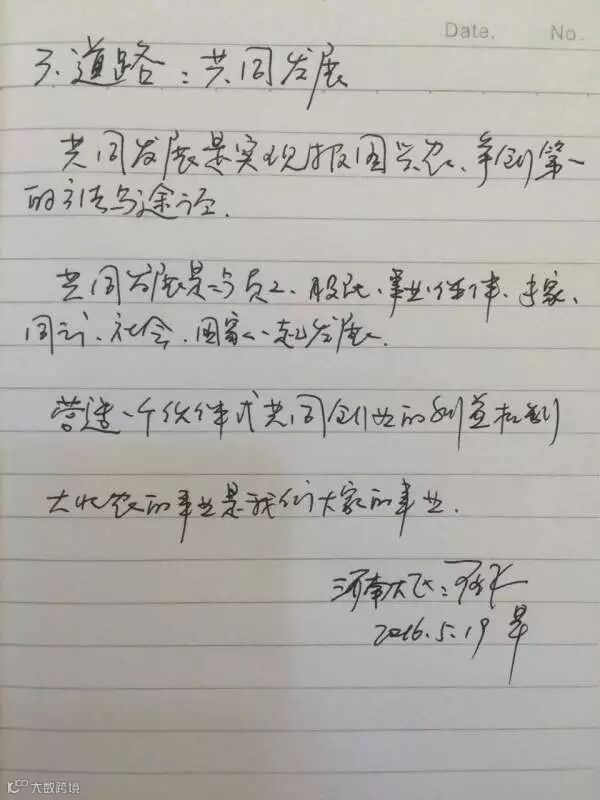 Date. No.
3、道路：共同发展
共同发展是实现报国兴农、争创第一
的方法与途径.
共同发展是与员工、股民、事业伙伴、专家、
同行、社会、国家一起发展.
营造一个伙伴式共同创业的利益机制
大北农的事业是我们大家的事业.
河南大飞：
2016.5.19 早
大数跨境